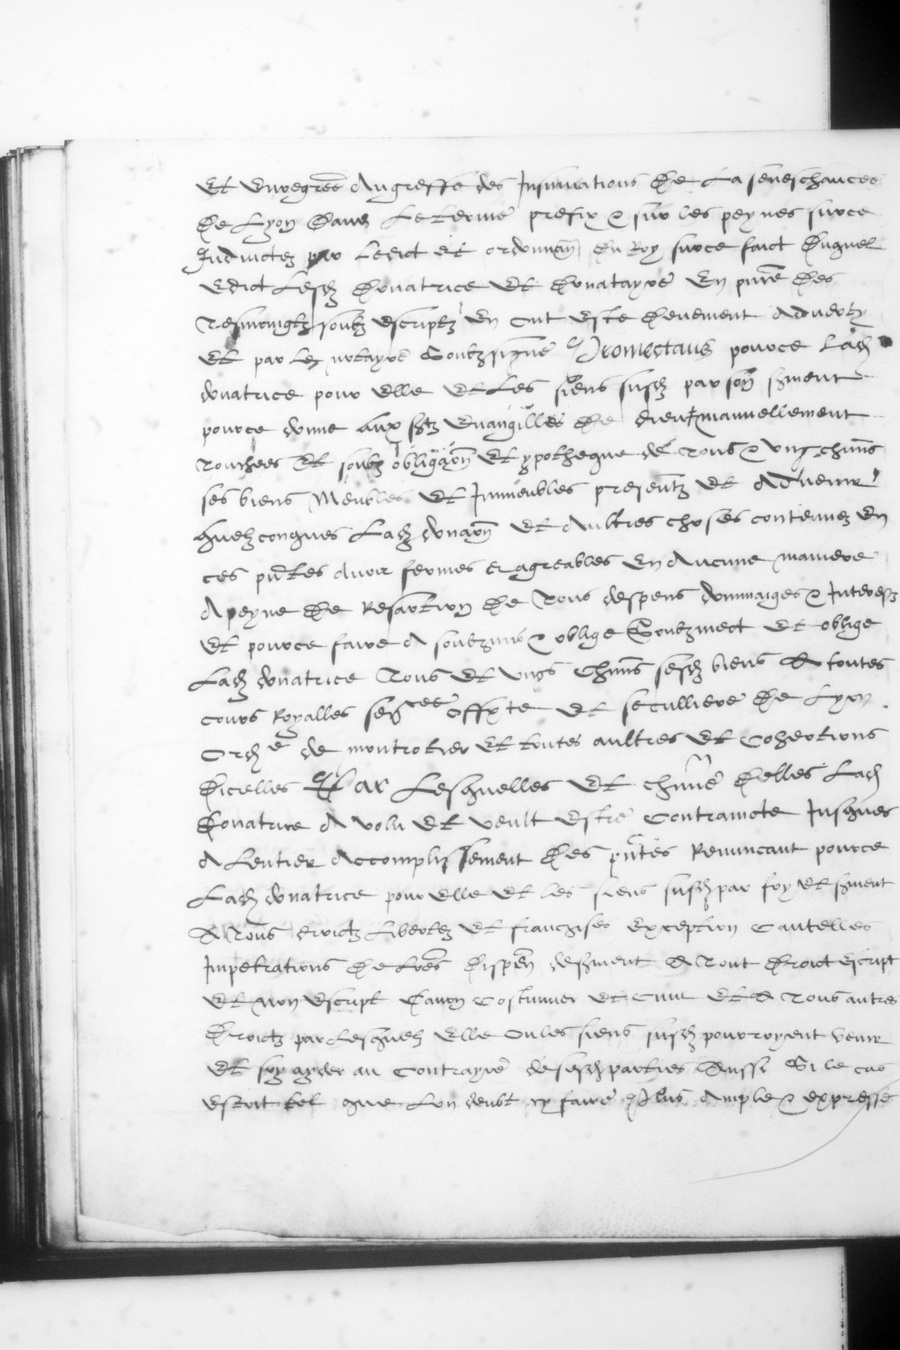 Et enregrés au greffe des Insinuations de La seneschaucee
de Lyon dans Le terme prefix & sur les peynes surce
Inductez par Ledict et ordonnan du Roy surce faict duquel
edict Lesd donatrice Et donatayre En pnce des
tesmoingtz soubz escriptz En ont este devement advertz
Et par Le notayre soubzsigne Promectans pource Lad
donatrice pour elle Et Les siens susd par son sment
pource donne aux stz Evangilles de dieu manuellement
touchees Et soubz obligaon Et ypotheque de tous & ungchuns
ses biens Meubles et Inmeubles presentz Et Advenir
quelzconques Lad donaon Et Aultres choses contenuez En
ces pntes avoir fermes et agreables En Aucune maniere
A peyne de Resartion de tous despens dommaiges & Interestz
Et pource faire A soubzmis & oblige soubzmect Et oblige
Lad donatrice tous Et ungs chuns sesd biens A toutes
cours Royalles Et seculliere de Lyon
de montrotier Et toutes aultres Et Cohertions
dicelles Par Lesquelles Et chune delles Lad
donatrice A volu Et veult Estre Contraincte Jusques
A Lentier Accomplissement des pntes Renuncant pource
Lad donatrice pour elle Et les siens susd par foy Et sment
A tous droictz Libertez Et franchises exception Cautelles
Impetrations de Lres dispen desment A tout droict escript
Et non Escript Canon Costumier Et Civil Et A tous autres
droictz par Lesquelz elle ou les siens susd pourroyent venir
Et soy ayder au Contrayre desesd parties Aussi Si le cas
estoit tel que Lon deubt cy faire Plus Ample & expresse